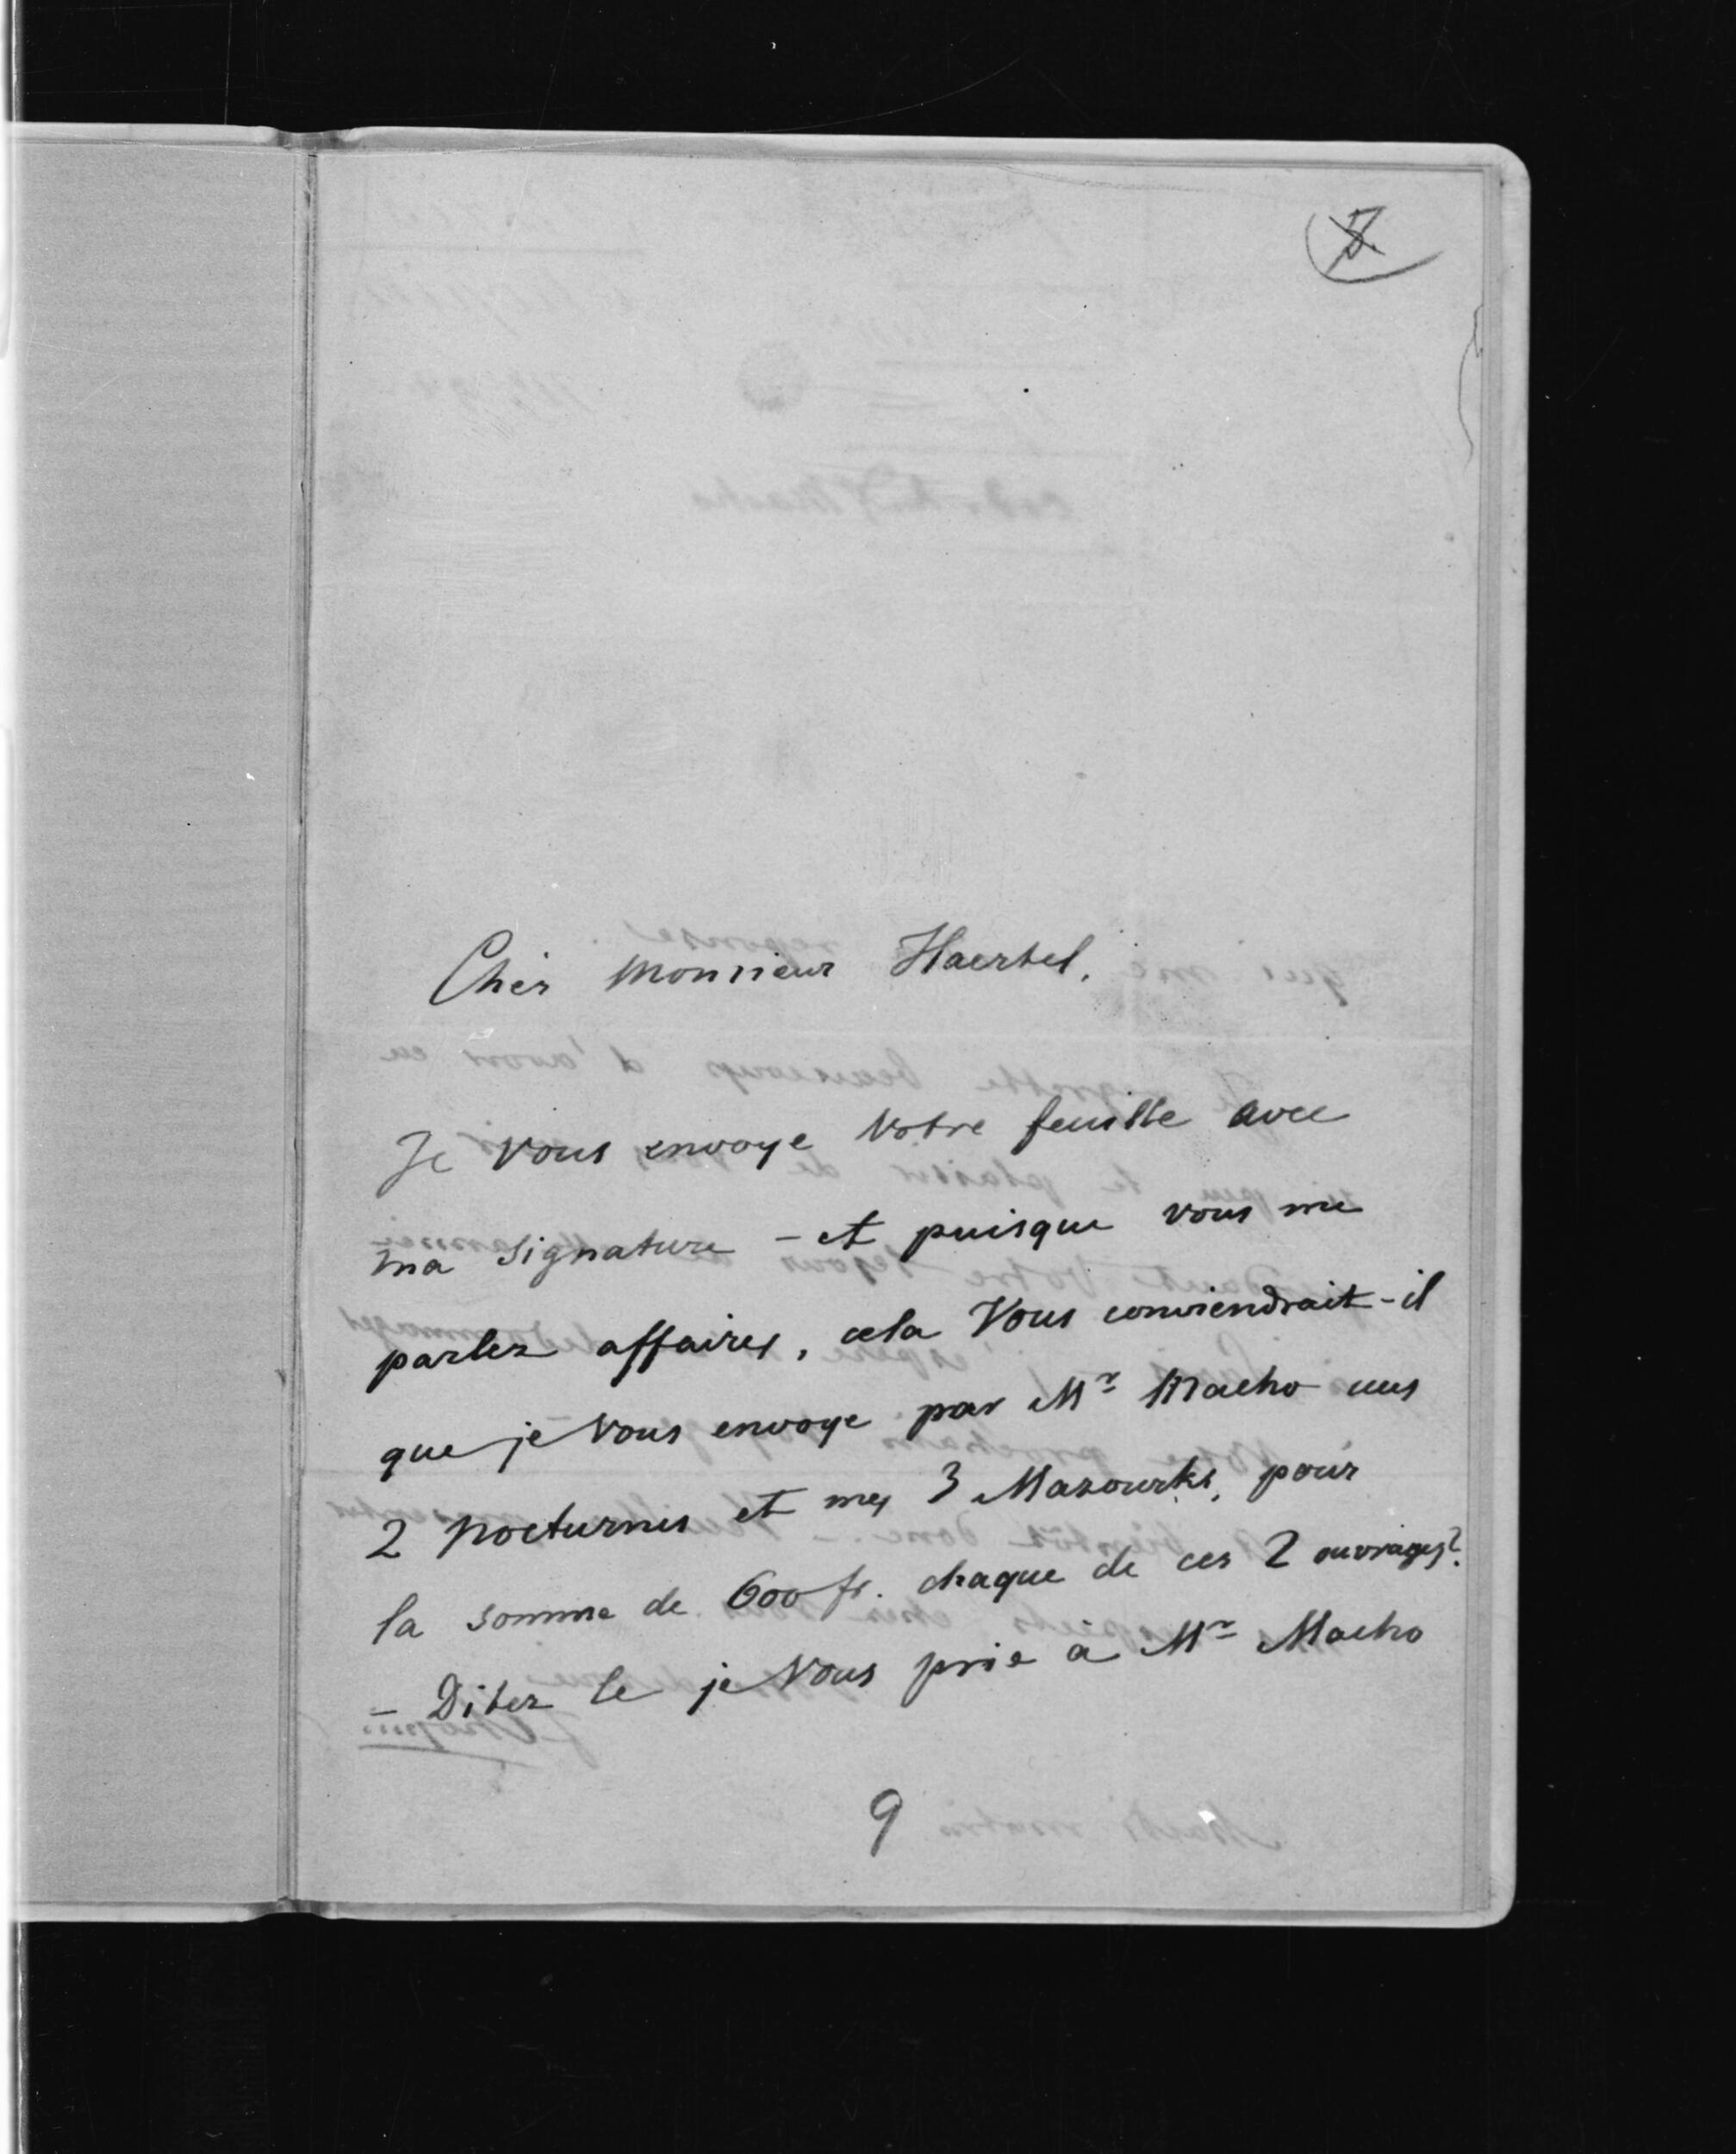 5.
Cher Monsieur Haertel.
Je Vous envoye Votre feuille avec
ma signature – et puisque vous me
parlez affaires, cela Vous conviendrait-il
que je Vous envoye par Mr Maeho
2 Nocturnes et mes 3 Mazourks, pour
la somme de 600 fr. chaque de ces 2 ouvrages?
– Dites le je Vous prie à Mr Maeho
9